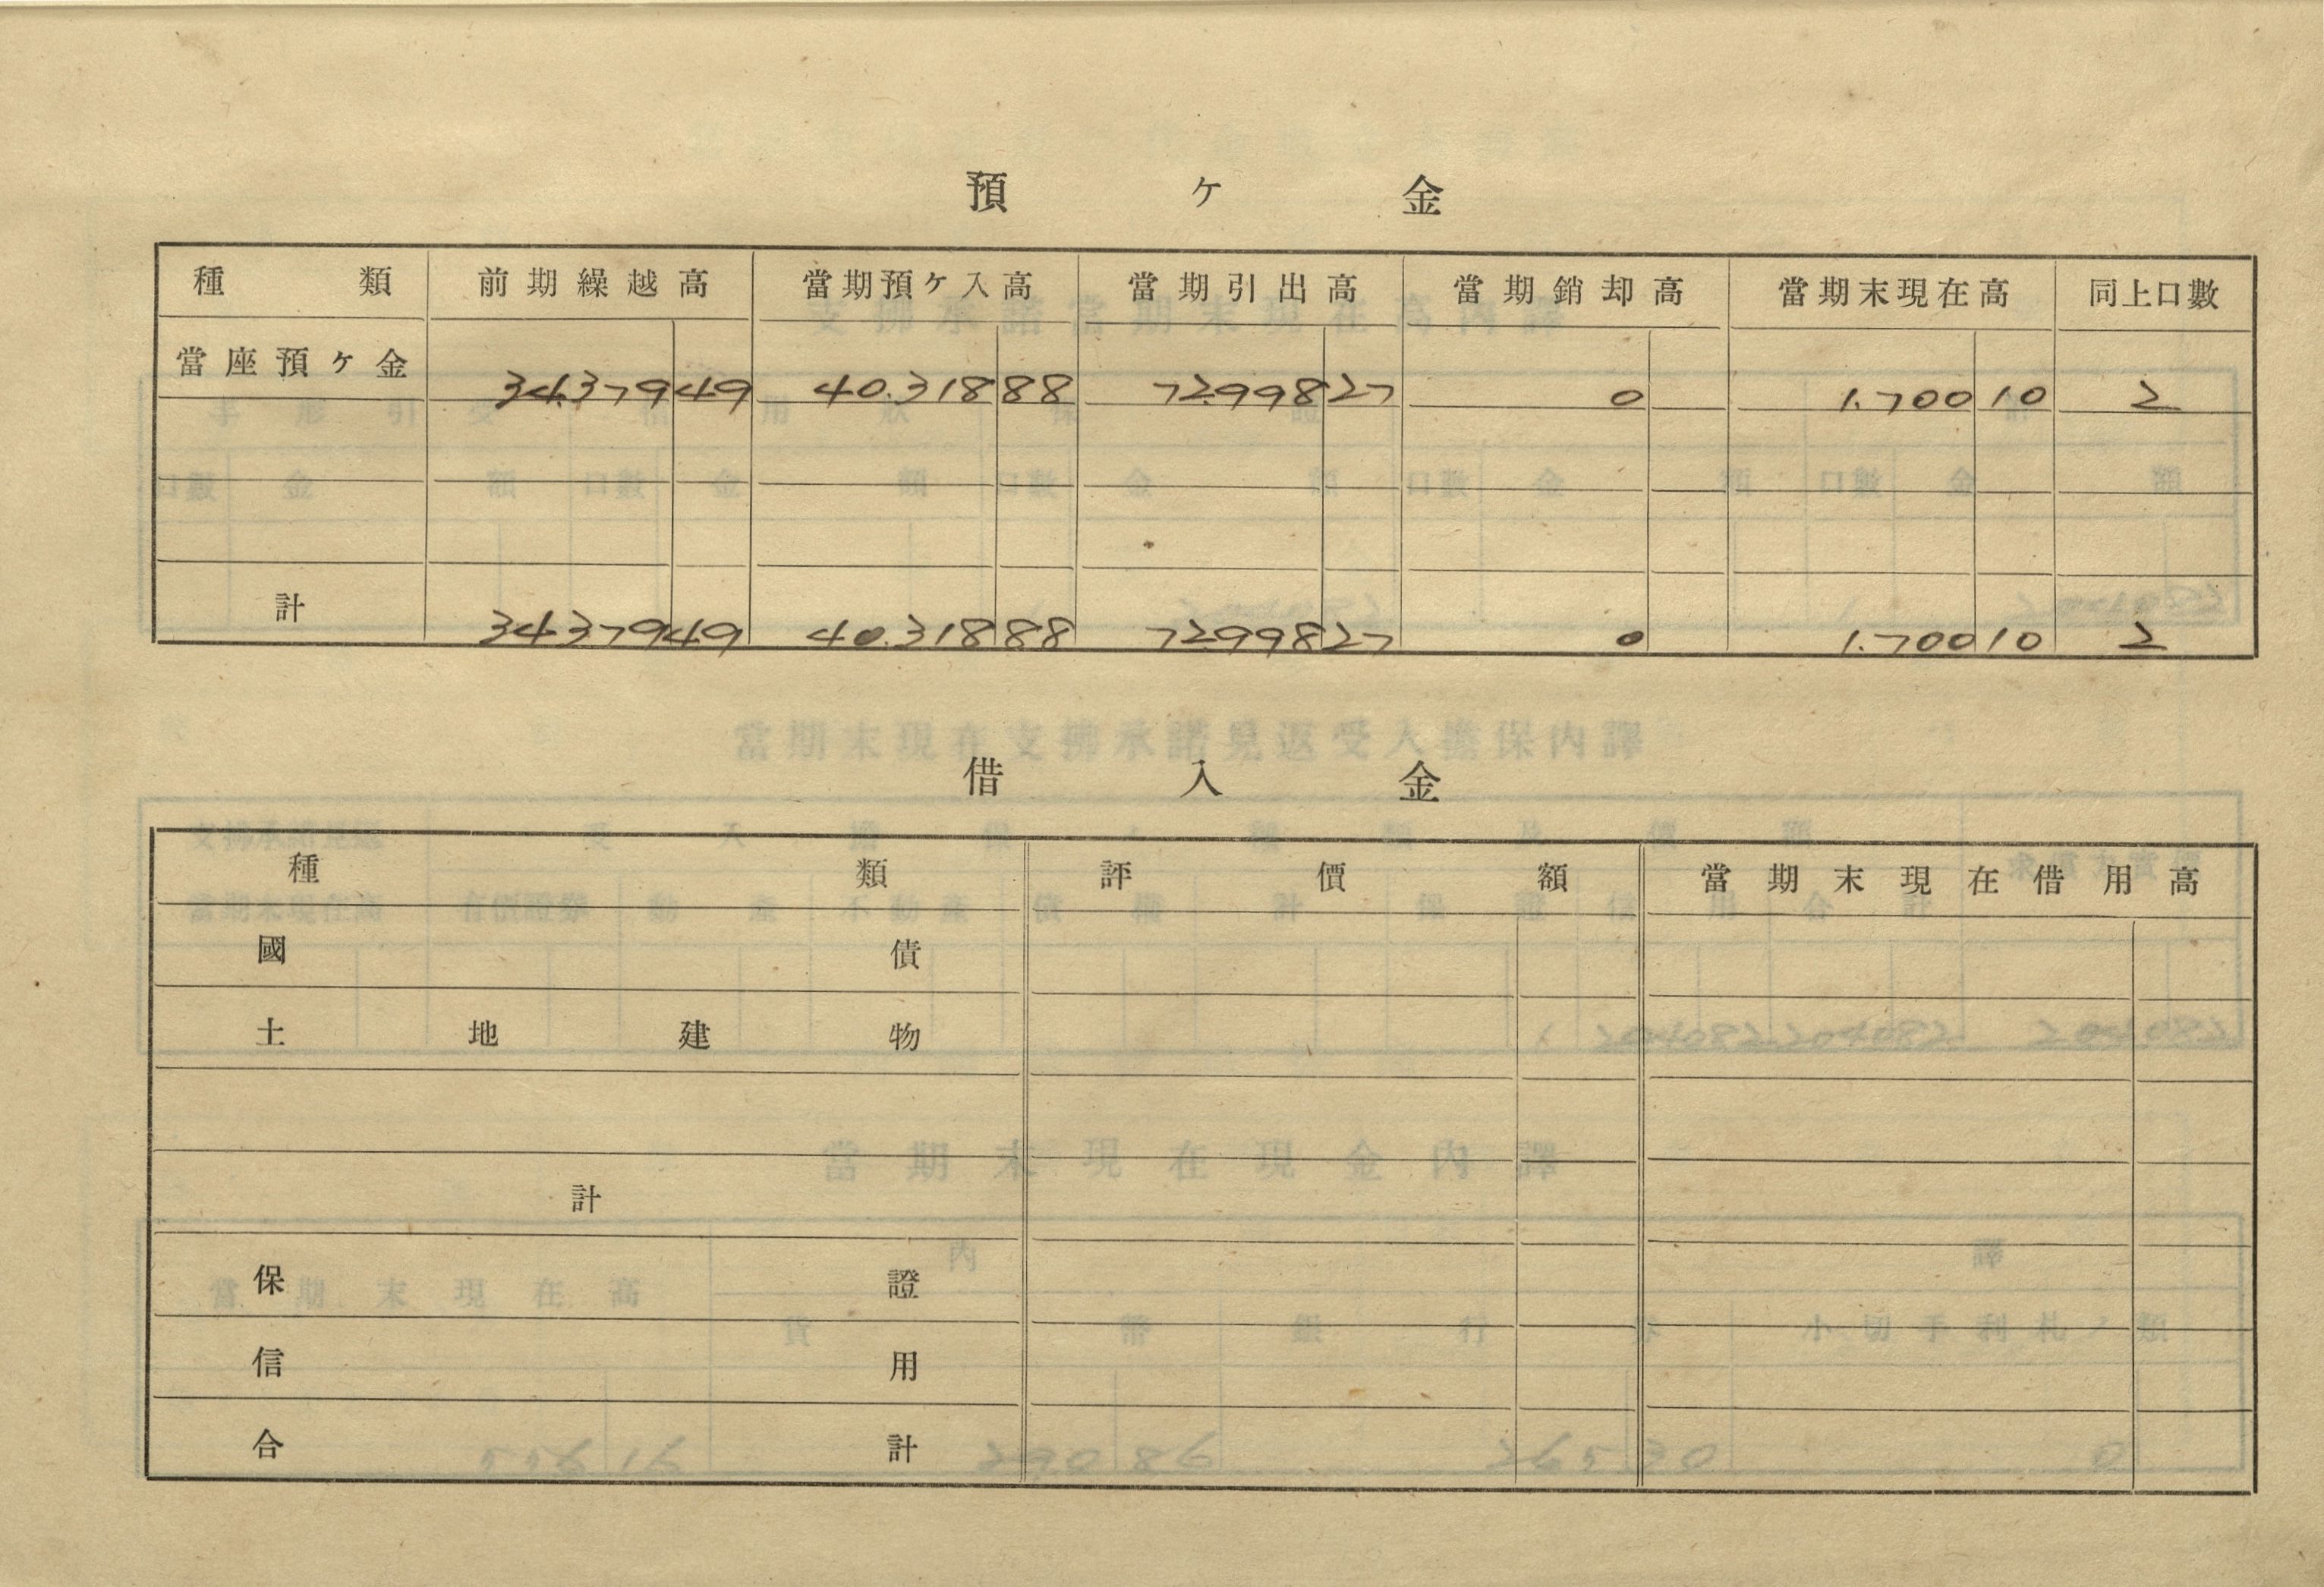 預ケ金
種類 前期繰越高 當期預ケ入高 當期引出高 當期銷却高 當期末現在高 同上口數
當座預ケ金 34.379 49 40.318 88 72.998 27 0 1.700 10 2
計 34.379 49 40.318 88 72.998 27 0 1.700 10 2
借入金
種類 評價額 當期末現在借用高
國債
土地建物
計
保證
信用
合計